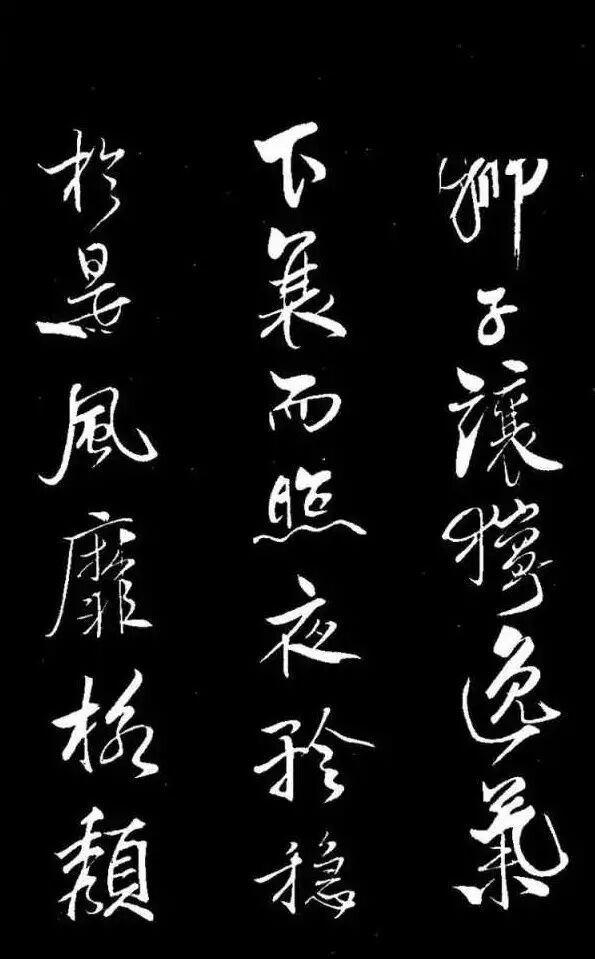 獅子讓獰逸氣
下衰而照夜矜穩
於是風靡格頹